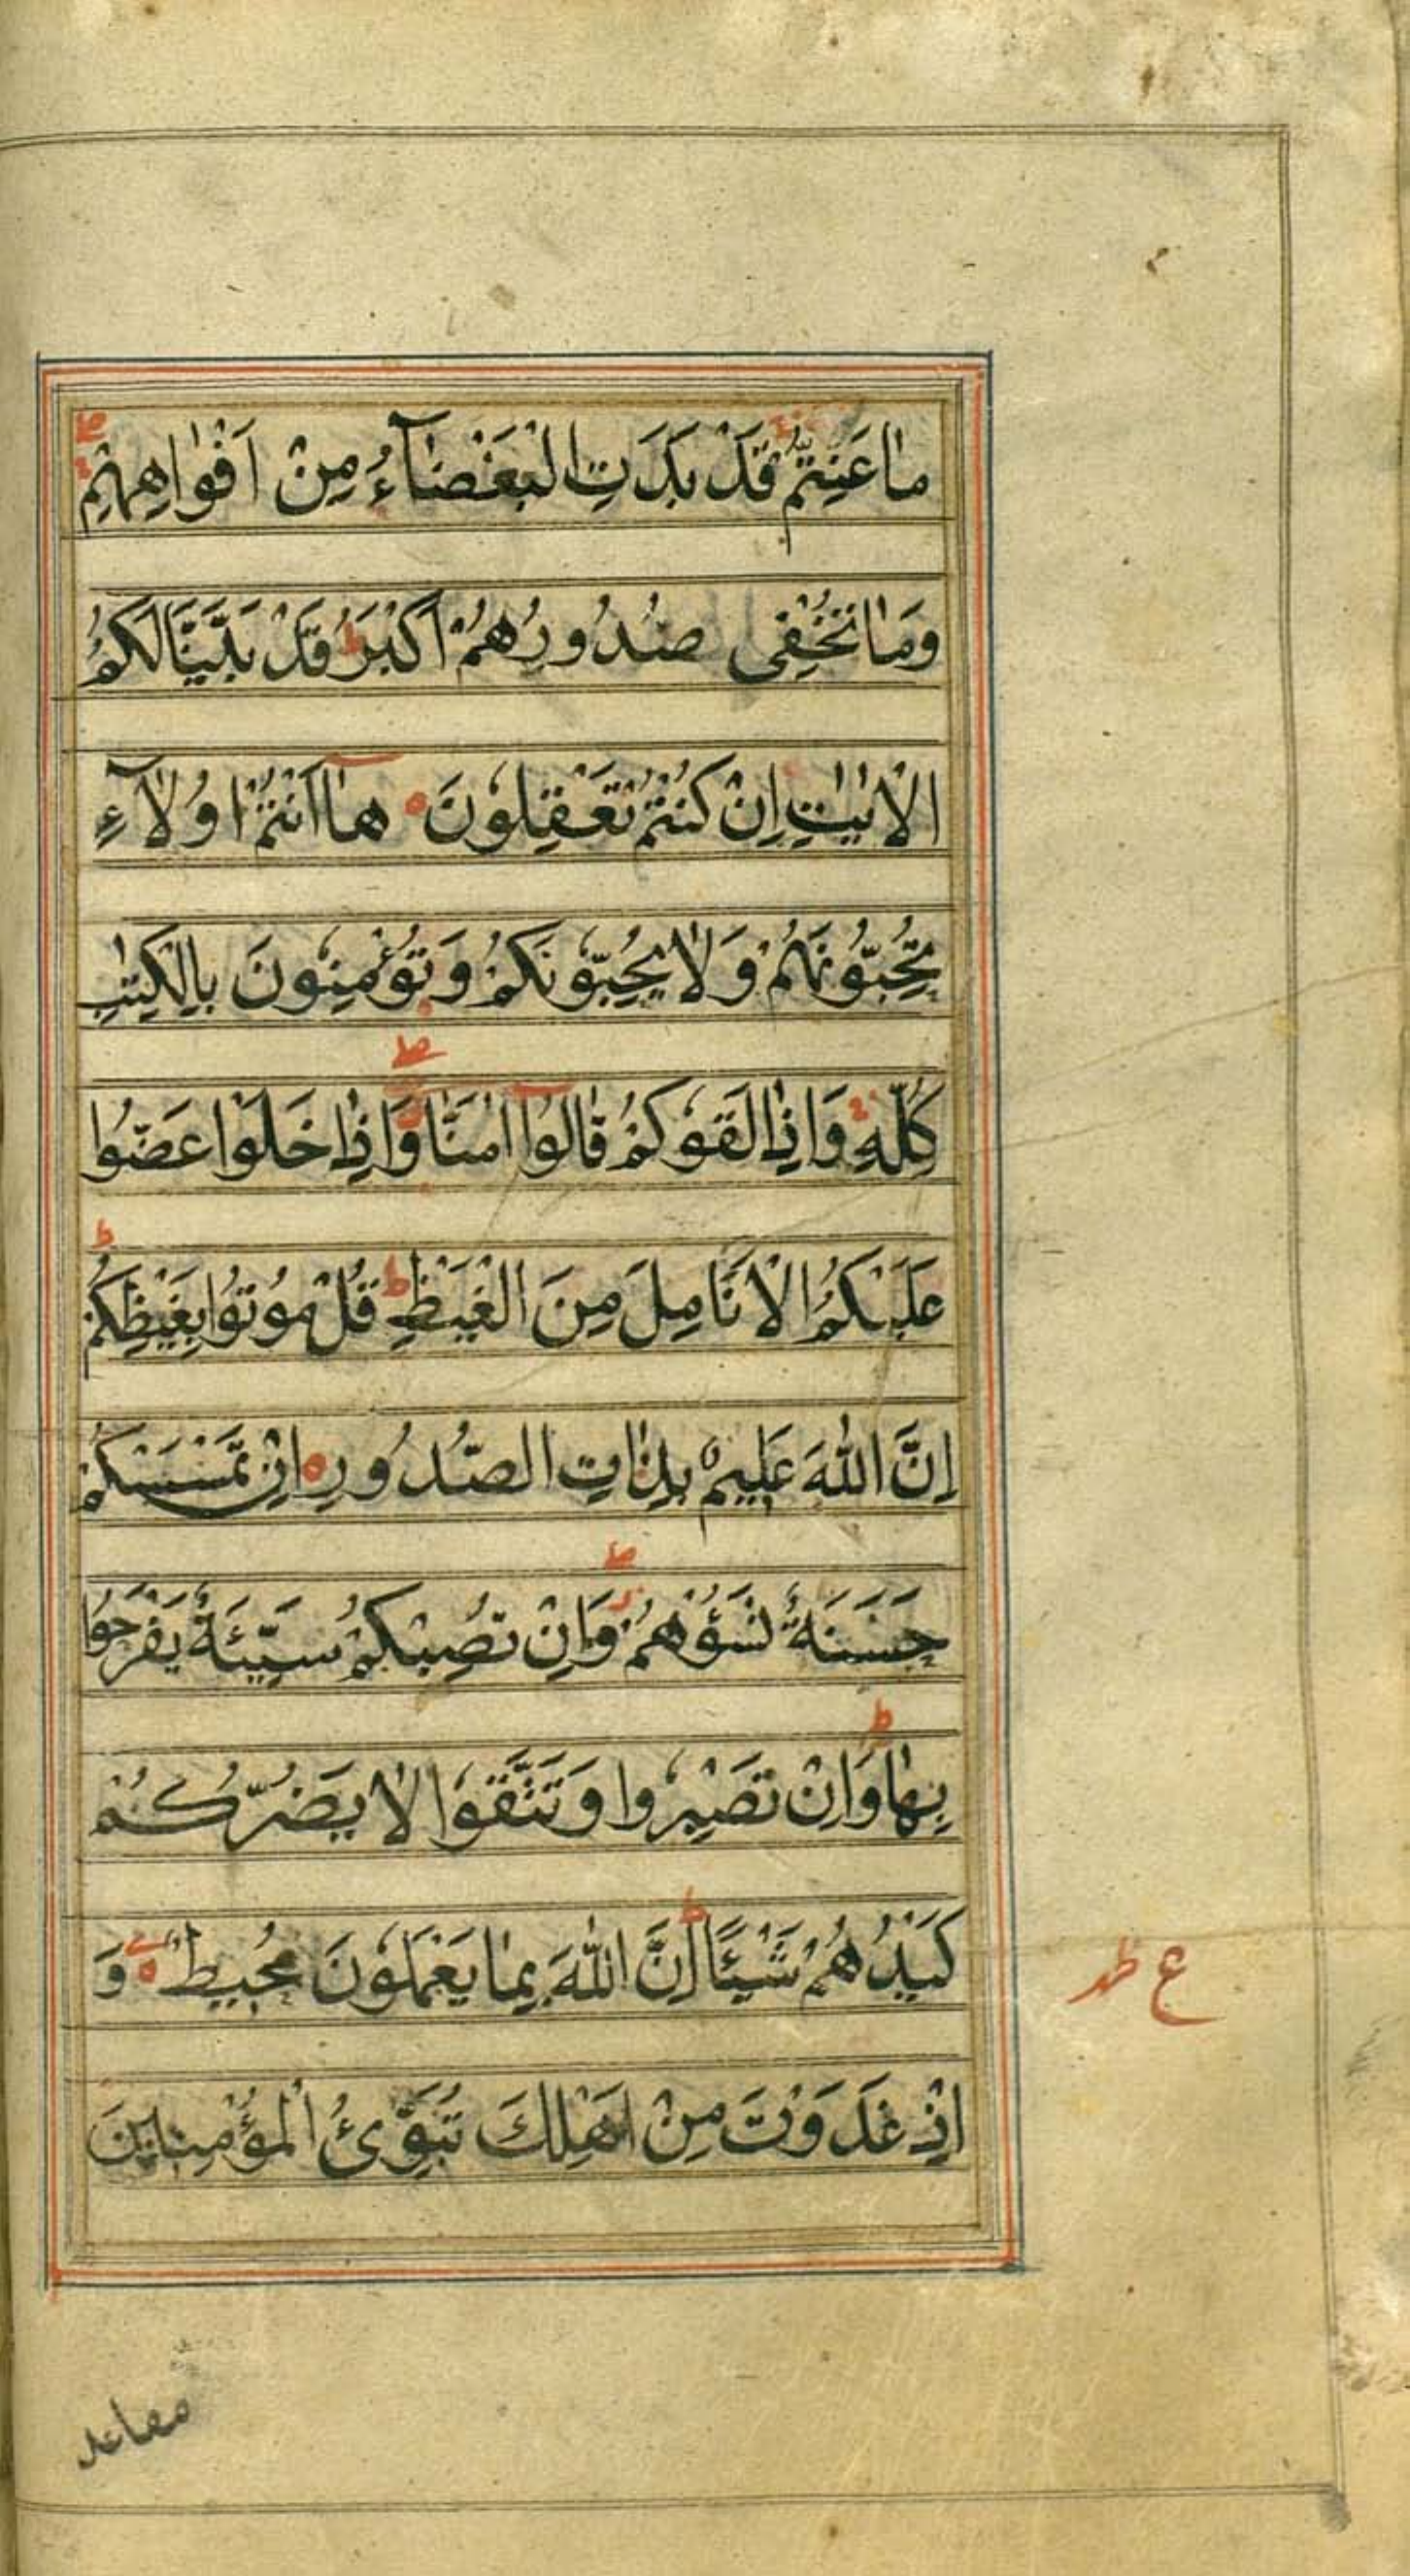 مَا عَنِتُّمْ قَدْ بَدَتِ الْبَغْضَآءُ مِنْ اَفْوَاهِهِمْ
وَمَا تُخْفِى صُدُورُهُمْ اَكْبَرُ ط قَدْ بَيَّنَّا لَكُمُ
الْاٰيٰتِ اِنْ كُنْتُمْ تَعْقِلُونَ هٰٓا اَنْتُمْ اُولَآءِ
تُحِبُّونَهُمْ وَلَا يُحِبُّونَكُمْ وَتُؤْمِنُونَ بِالْكِتٰبِ
كُلِّهِ وَاِذَا لَقُوكُمْ قَالُوٓا اٰمَنَّا وَاِذَا خَلَوْا عَضُّوا
عَلَيْكُمُ الْاَنَامِلَ مِنَ الْغَيْظِ ط قُلْ مُوتُوا بِغَيْظِكُمْ ط
اِنَّ اللّٰهَ عَلِيمٌ بِذَاتِ الصُّدُورِ اِنْ تَمْسَسْكُمْ
حَسَنَةٌ تَسُؤْهُمْ وَاِنْ تُصِبْكُمْ سَيِّئَةٌ يَفْرَحُوا
بِهَا ط وَاِنْ تَصْبِرُوا وَتَتَّقُوا لَا يَضُرُّكُمْ
كَيْدُهُمْ شَيْئًا ط اِنَّ اللّٰهَ بِمَا يَعْمَلُونَ مُحِيطٌ وَ
ع
اِذْ غَدَوْتَ مِنْ اَهْلِكَ تُبَوِّئُ الْمُؤْمِنِينَ
مقاعد